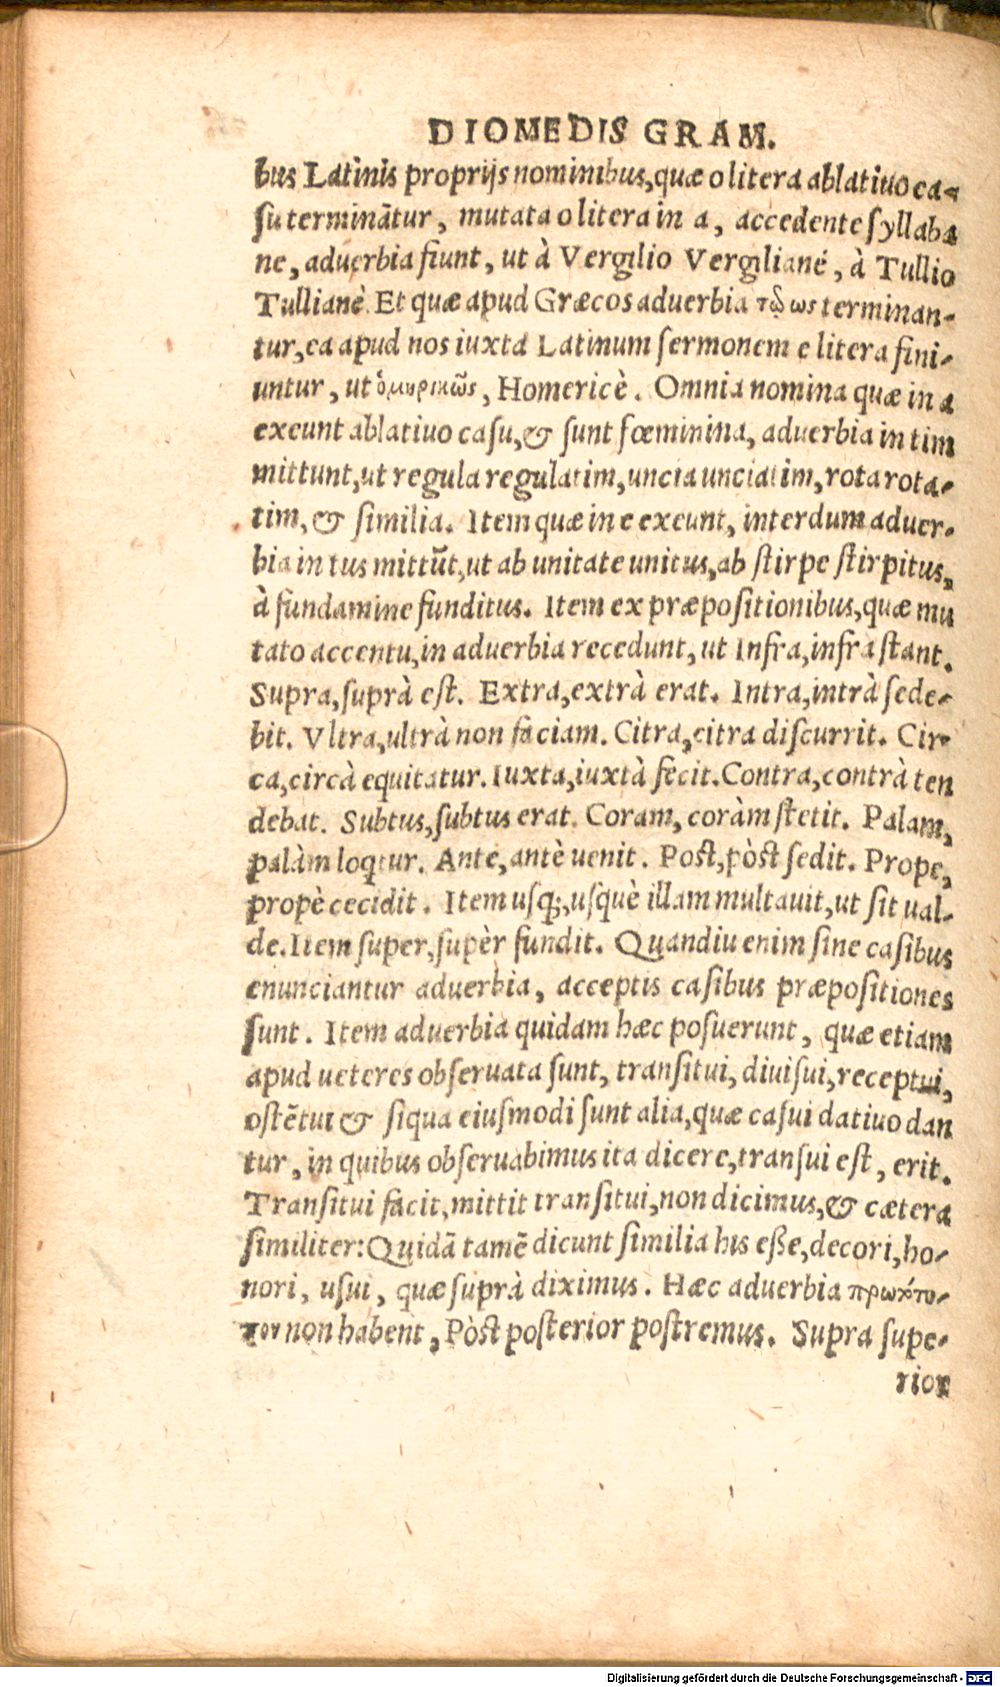 DIOMEDIS GRAM.
bus Latinis proprijs nominibus, quæ o litera ablatiuo ca-
su terminãtur, mutata o litera in a, accedente syllaba
ne, aduerbia fiunt, ut à Vergilio Vergiliané, à Tullio
Tullianè. Et quæ apud Græcos aduerbia τῷ ως terminan-
tur, ea apud nos iuxta Latinum sermonem e litera fini-
untur, ut ὁμηρικῶς, Homericè. Omnia nomina quæ in a
exeunt ablatiuo casu, & sunt fœminina, aduerbia in tim
mittunt, ut regula regulatim, uncia unciatim, rota rota-
tim, & similia. Item quæ in e exeunt, interdum aduer-
bia in tus mittũt, ut ab unitate unitus, ab stirpe stirpitus,
à fundamine funditus. Item ex præpositionibus, quæ mu
tato accentu, in aduerbia recedunt, ut Infra, infra stant.
Supra, suprà est. Extra, extrà erat. Intra, intrà sede-
bit. Vltra, ultrà non faciam. Citra, citra discurrit. Cir-
ca, circà equitatur. Iuxta, iuxtà fecit. Contra, contrà ten
debat. Subtus, subtus erat. Coram, coràm stetit. Palam,
palàm loqtur. Ante, antè uenit. Post, pòst sedit. Prope,
propè cecidit. Item usq;, usquè illam multauit, ut sit ual-
de. Item super, supèr fundit. Quandiu enim sine casibus
enunciantur aduerbia, acceptis casibus præpositiones
sunt. Item aduerbia quidam hæc posuerunt, quæ etiam
apud ueteres obseruata sunt, transitui, diuisui, receptui,
ostẽtui & siqua eiusmodi sunt alia, quæ casui datiuo dan
tur, in quibus obseruabimus ita dicere, transui est, erit.
Transitui facit, mittit transitui, non dicimus, & cætera
similiter: Quidã tamẽ dicunt similia his esse, decori, ho-
nori, usui, quæ suprà diximus. Hæc aduerbia πρωτότυ-
πον non habent, Pòst posterior postremus. Supra supe-
rior
Digitalisierung gefördert durch die Deutsche Forschungsgemeinschaft - DFG